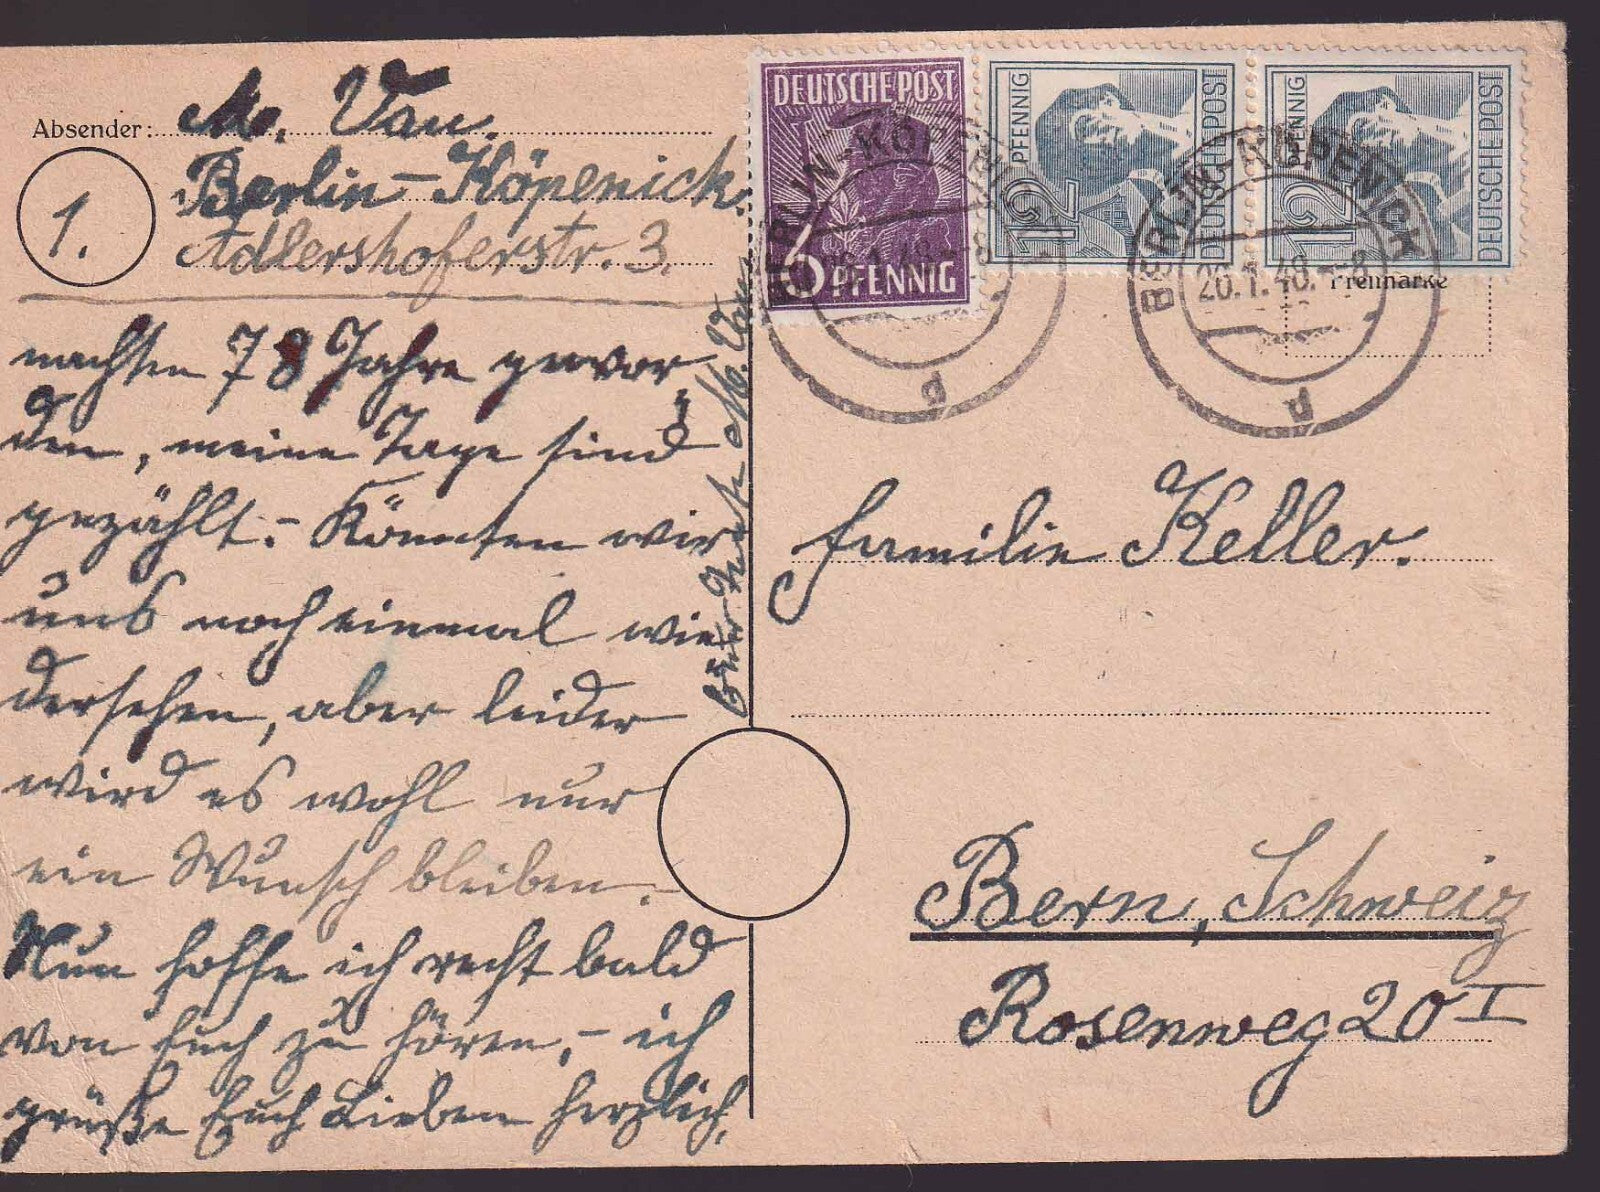 Absender: M. Van.
1.
Berlin-Köpenick.
Adlershoferstr. 3.
machten 78 Jahre gewor-
den, meine Tage sind
gezählt.- Könnten wir
uns noch einmal wie
dersehen, aber leider
wird es wohl nur
ein Wunsch bleiben.
Nun hoffe ich recht bald
von Euch zu hören,- ich
grüße Euch Lieben herzlich,
Eure M. Van
DEUTSCHE POST
6 PFENNIG
12 PFENNIG
DEUTSCHE POST
12 PFENNIG
DEUTSCHE POST
BERLIN-KÖPENICK
26.1.48.-8
d
BERLIN-KÖPENICK
26.1.48.-8
d
Freimarke
Familie Keller.
Bern, Schweiz
Rosenweg 20 I